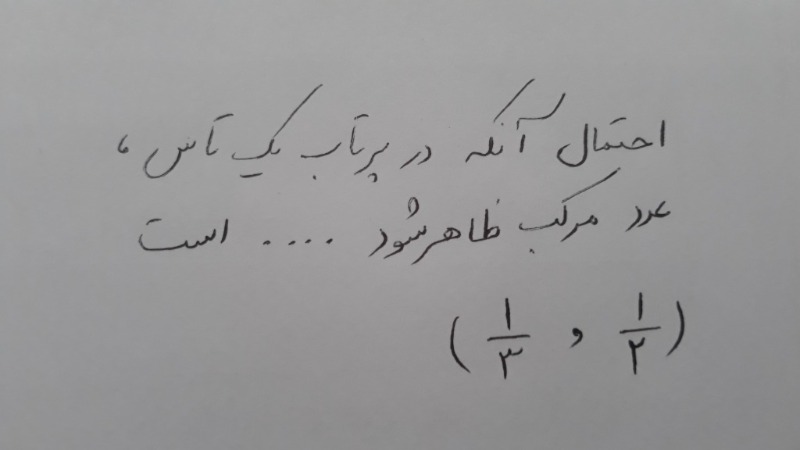 احتمال آنکه در پرتاب یک تاس،
عدد مرکب ظاهر شود .... است
(۱/۲ و ۱/۳)